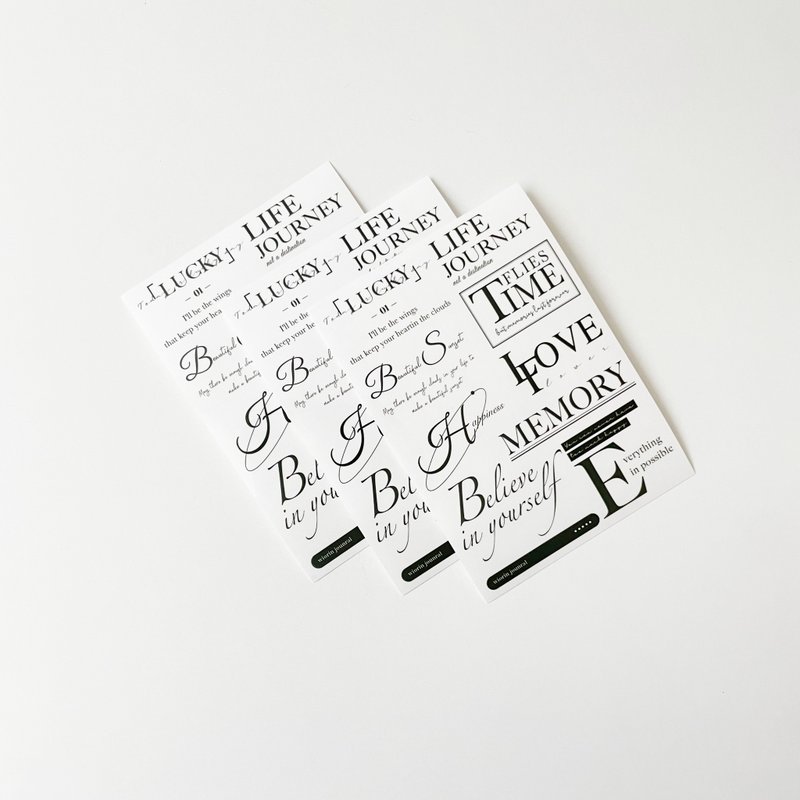 LUCKY
LIFE
JOURNEY
not a destination
01
I'll be the wings
that keep your hea
Beautiful
B
in you
wiorin jounral
LUCKY
LIFE
JOURNEY
01
I'll be the wings
that keep your hea
Beautiful
B
in you
wiorin jounral
LUCKY
LIFE
JOURNEY
not a destination
01
I'll be the wings
that keep your heartin the clouds
TIME
FLIES
but memories last forever
Beautiful Sunset
May there be enough clouds in your life to
make a beautiful sunset
LOVE
lover
Happiness
MEMORY
You can never have
Too much happy
Believe
in yourself
Everything
in possible
wiorin jounral